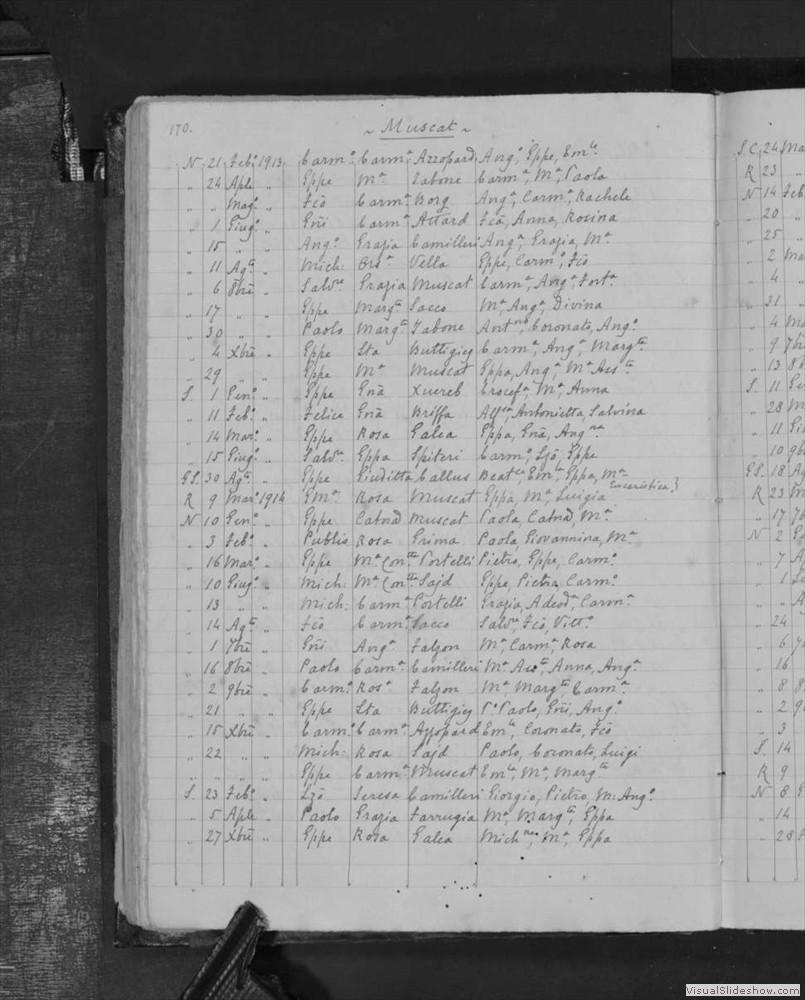 170.
~ Muscat ~
N 21 Feb.º 1913 Carm.º Carm.ª Azzopard Ang.º, Eppe, Em.le
„ 24 Aple „ Eppe M.ª Zabone Carm.ª, M.ª, Paola
„ „ Mag.º „ Fcõ Carm.ª Borg Ang.ª, Carm.ª, Rachele
„ 1 Giug.º „ Gñi Carm.ª Attard Fcã, Anna, Rosina
„ 15 „ „ Ang.º Grazia Camilleri Ang.ª, Grazia, M.ª
„ 11 Ag.to „ Mich: Ors.ª Vella Eppe, Carm.º, Fcõ
„ 6 8bre „ Salv.re Grazia Muscat Carm.ª, Ang.ª, Fort.ª
„ 17 „ „ Eppe Marg.ta Sacco M.ª, Ang.ª, Divina
„ 30 „ „ Paolo Marg.ta Zabone Ant.na, Coronato, Ang.º
„ 4 Xbre „ Eppe Sta Buttigieg Carm.ª, Ang.ª, Marg.ta
„ 29 „ „ Eppe M.ª Muscat Eppa, Ang.ª, M.ª Ass.ta
S. 1 Gen.º „ Eppe Gñã Xuereb Crocef.ª, M.ª, Anna
„ 11 Feb.º „ Felice Gñã Briffa Antonietta, Salvina
„ 14 Mar.º „ Eppe Rosa Galea Eppa, Gñã, Ang.na
„ 15 Giug.º „ Salv.re Eppa Spiteri Carm.º, Lzõ, Eppe
GS. 30 Ag.to „ Eppe Giuditta Callus Beat.ce, Em.le, Eppa, M.ª
Eucaristica}
R 9 Mar.º 1914 Em.le Rosa Muscat Eppa, M.ª, Luigia
N 10 Gen.º „ Eppe Catnã Muscat Paola, Catnã, M.ª
„ 3 Feb.º „ Publio Rosa Grima Paola, Giovannina, M.ª
„ 16 Mar.º „ Eppe M.ª Con.tta Portelli Pietro, Eppe, Carm.º
„ 10 Giug.º „ Mich: M.ª Con.tta Sajd Eppe, Pietro, Carm.º
„ 13 „ „ Mich: Carm.ª Portelli Grazia, Adeod.ª, Carm.ª
„ 14 Ag.to „ Fcõ Carm.ª Sacco Salv.re, Fcõ, Vitt.º
„ 1 7bre „ Gñi Ang.ª Falzon M.ª, Carm.ª, Rosa
„ 16 8bre „ Paolo Carm.ª Camilleri M.ª Ass.ta, Anna, Ang.ª
„ 2 9bre „ Carm.º Ros.ª Falzon M.ª Marg.ta, Carm.ª
„ 21 „ „ Eppe Sta Buttigieg P.º Paolo, Gñi, Ang.º
„ 15 Xbre „ Carm.º Carm.ª Azzopard Em.le, Coronato, Fcõ
„ 22 „ „ Mich: Rosa Sajd Paolo, Coronato, Luigi
„ „ „ „ Eppe Carm.ª Muscat Em.la, M.ª, Marg.ta
S. 23 Feb.º „ Lzõ Teresa Camilleri Giorgio, Pietro, M: Ang.º
„ 5 Aple „ Paolo Grazia Farrugia M.ª, Marg.ta, Eppa
„ 27 Xbre „ Eppe Rosa Galea Mich.na, M.ª, Eppa
S.C. 24 Ma
R 23 „
N 14 Feb
„ 20 „
„ 25 „
„ 2 Ma
„ 4 „
„ 31 „
„ 4 Ma
„ 9 7b
„ 13 8b
S. 11 Ge
„ 28 M
„ 11 Gi
„ 10 9b
GS. 18 Ag
R 23 M
„ 17 7b
N 2 G
„ 7 A
„ 1
„ „ A
„ 24
„ 6 7
„ 16
„ 8 8
„ 2 9
„ 3
S. 14
R 9
N 8
„ 14
„ 28
VisualSlideshow.com